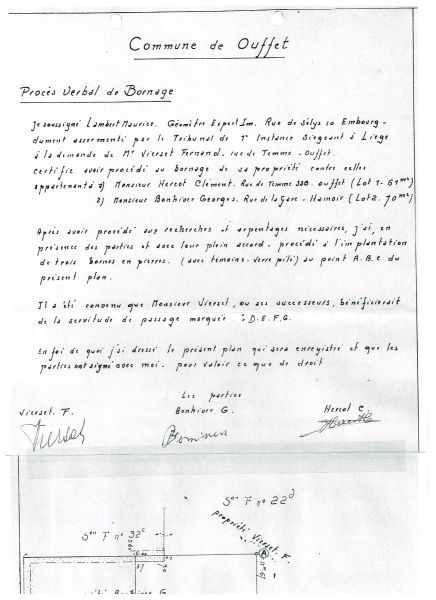 Commune de Ouffet
Procès Verbal de Bornage
Je soussigné Lambert Maurice. Géomètre Expert Im. Rue de Sélys 10 Embourg-
dument assermenté par le Tribunal de 1e Instance Siégeant à Liège
à la demande de Mr Vierset Fernand, rue de Temme - Ouffet.
Certifie avoir procédé au bornage de sa propriété contre celles
appartenant à 1) Monsieur Hercot Clément. Rue de Temme 39B. Ouffet (Lot 1- 61 m²)
2) Monsieur Bonhiver Georges. Rue de la Gare - Hamoir (Lot 2. 70 m²)
Après avoir procédé aux recherches et arpentages nécessaires, j'ai, en
présence des parties et avec leur plein accord, procédé à l'implantation
de trois bornes en pierres. (avec temoins - verre pilé) au point A.B.C du
présent plan.
Il a été convenu que Monsieur Vierset, ou ses successeurs, bénéficierait
de la servitude de passage marquée : D.E.F.G.
En foi de quoi j'ai dressé le présent plan qui sera enregistré et que les
parties ont signé avec moi. pour valoir ce que de droit
Les parties
Vierset. F. Bonhiver G. Hercot C.
Son F no 22d
Son F no 32c
propriété Vierset. F.
A
Bonhiver G.